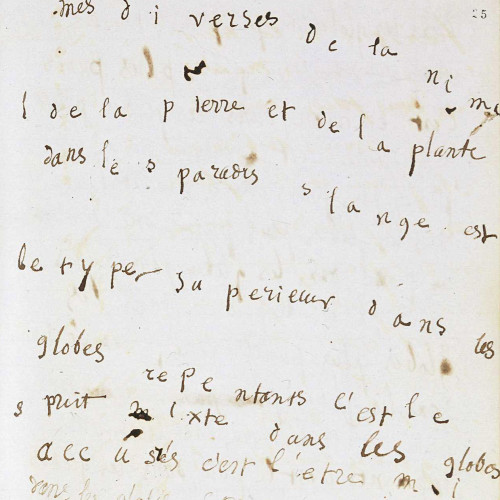 25
mes di verses de la nima
l de la pierre et de la plante
dans les paradis l ange est
le type su perieur dans les
globes repentants c'est le
s prit mixte dans les globes
acc usés c'est l'etre mi